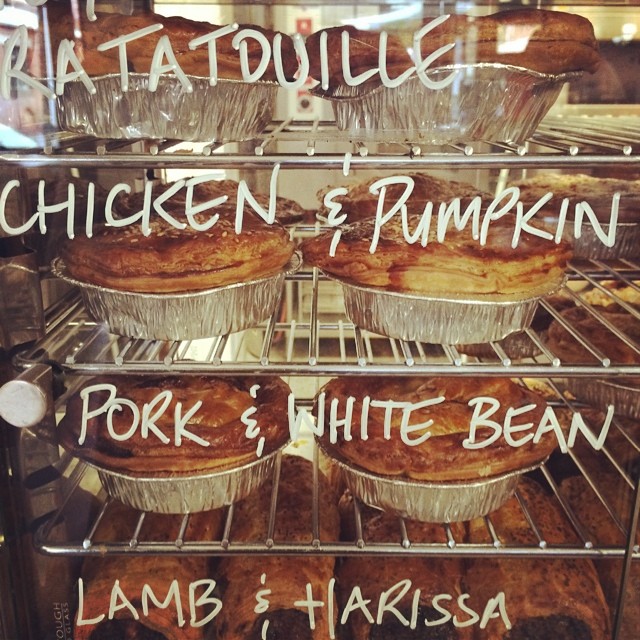 RATATOUILLE
CHICKEN & PUMPKIN
PORK & WHITE BEAN
LAMB & HARISSA